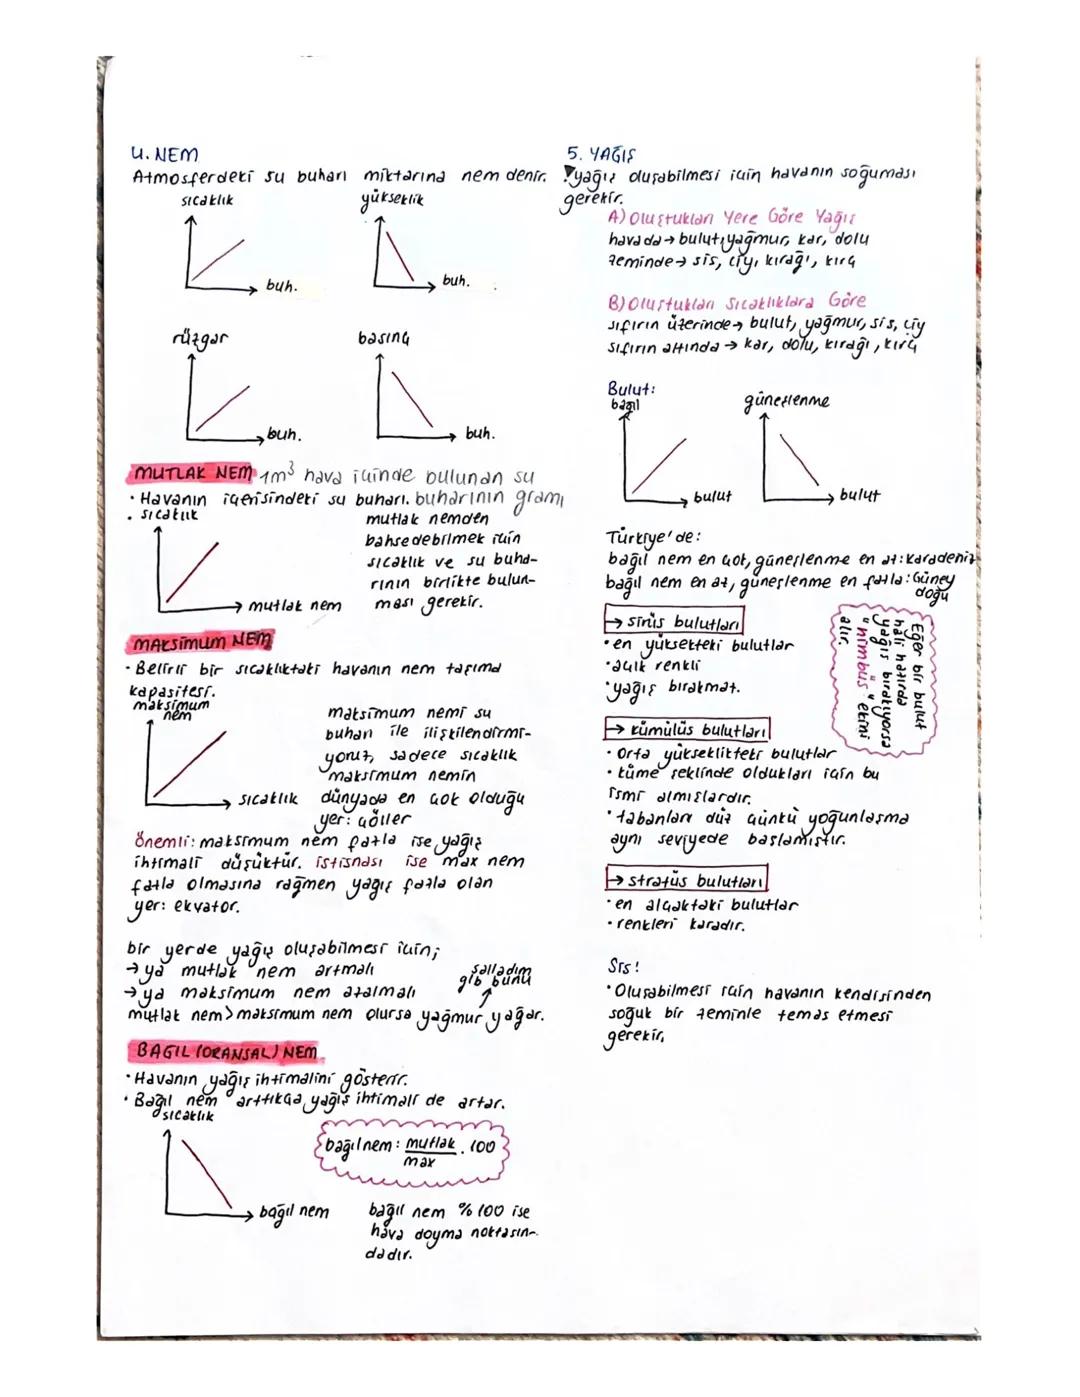 4. NEM
Atmosferdeki su buharı miktarına nem denir.
sıcaklık
yükseklik
buh.
buh.
rüzgar
basınç
buh.
buh.
MUTLAK NEM 1m³ hava içinde bulunan su
• Havanın içerisindeki su buharı. buharının gramı
• sıcaklık
mutlak nemden
bahsedebilmek için
sıcaklık ve su buha-
rının birlikte bulun-
ması gerekir.
mutlak nem
MAKSİMUM NEM
• Belirli bir sıcaklıktaki havanın nem taşıma
kapasitesi.
maksimum
nem
sıcaklık
maksimum nemi su
buharı ile ilişkilendirmi-
yoruz, sadece sıcaklık
maksimum nemin
dünyada en çok olduğu
yer: çöller
Önemli: maksimum nem fazla ise yağış
ihtimali düşüktür. istisnası ise max nem
fazla olmasına rağmen yağış fazla olan
yer: ekvator.
bir yerde yağış oluşabilmesi için;
→ ya mutlak nem artmalı
→ ya maksimum nem azalmalı
salladım
gib bunu
mutlak nem > maksimum nem olursa yağmur yağar.
BAĞIL (ORANSAL) NEM
• Havanın yağış ihtimalini gösterir.
• Bağıl nem arttıkça yağış ihtimali de artar.
sıcaklık
bağıl nem
bağıl nem: mutlak . 100
max
bağıl nem %100 ise
hava doyma noktasın-
dadır.
5. YAĞIŞ
! yağış oluşabilmesi için havanın soğuması
gerekir.
A) Oluştukları Yere Göre Yağış
havada → bulut, yağmur, kar, dolu
zeminde → sis, çiy, kırağı, kırç
B) Oluştukları Sıcaklıklara Göre
sıfırın üzerinde → bulut, yağmur, sis, çiy
sıfırın altında → kar, dolu, kırağı, kırç
Bulut:
bağıl
güneşlenme
bulut
bulut
Türkiye'de:
bağıl nem en çok, güneşlenme en az: Karadeniz
bağıl nem en az, güneşlenme en fazla: Güney
doğu
→ sirüs bulutları
• en yüksekteki bulutlar
• açık renkli
• yağış bırakmaz.
Eğer bir bulut
hali hazırda
yağış bırakıyorsa
"nimbus" ekini
alır.
→ kümülüs bulutları
• Orta yükseklikteki bulutlar
• küme şeklinde oldukları için bu
ismi almışlardır.
• tabanları düz çünkü yoğunlaşma
aynı seviyede başlamıştır.
→ stratüs bulutları
• en alçaktaki bulutlar
• renkleri karadır.
Sis!
• Oluşabilmesi için havanın kendisinden
soğuk bir zeminle temas etmesi
gerekir.